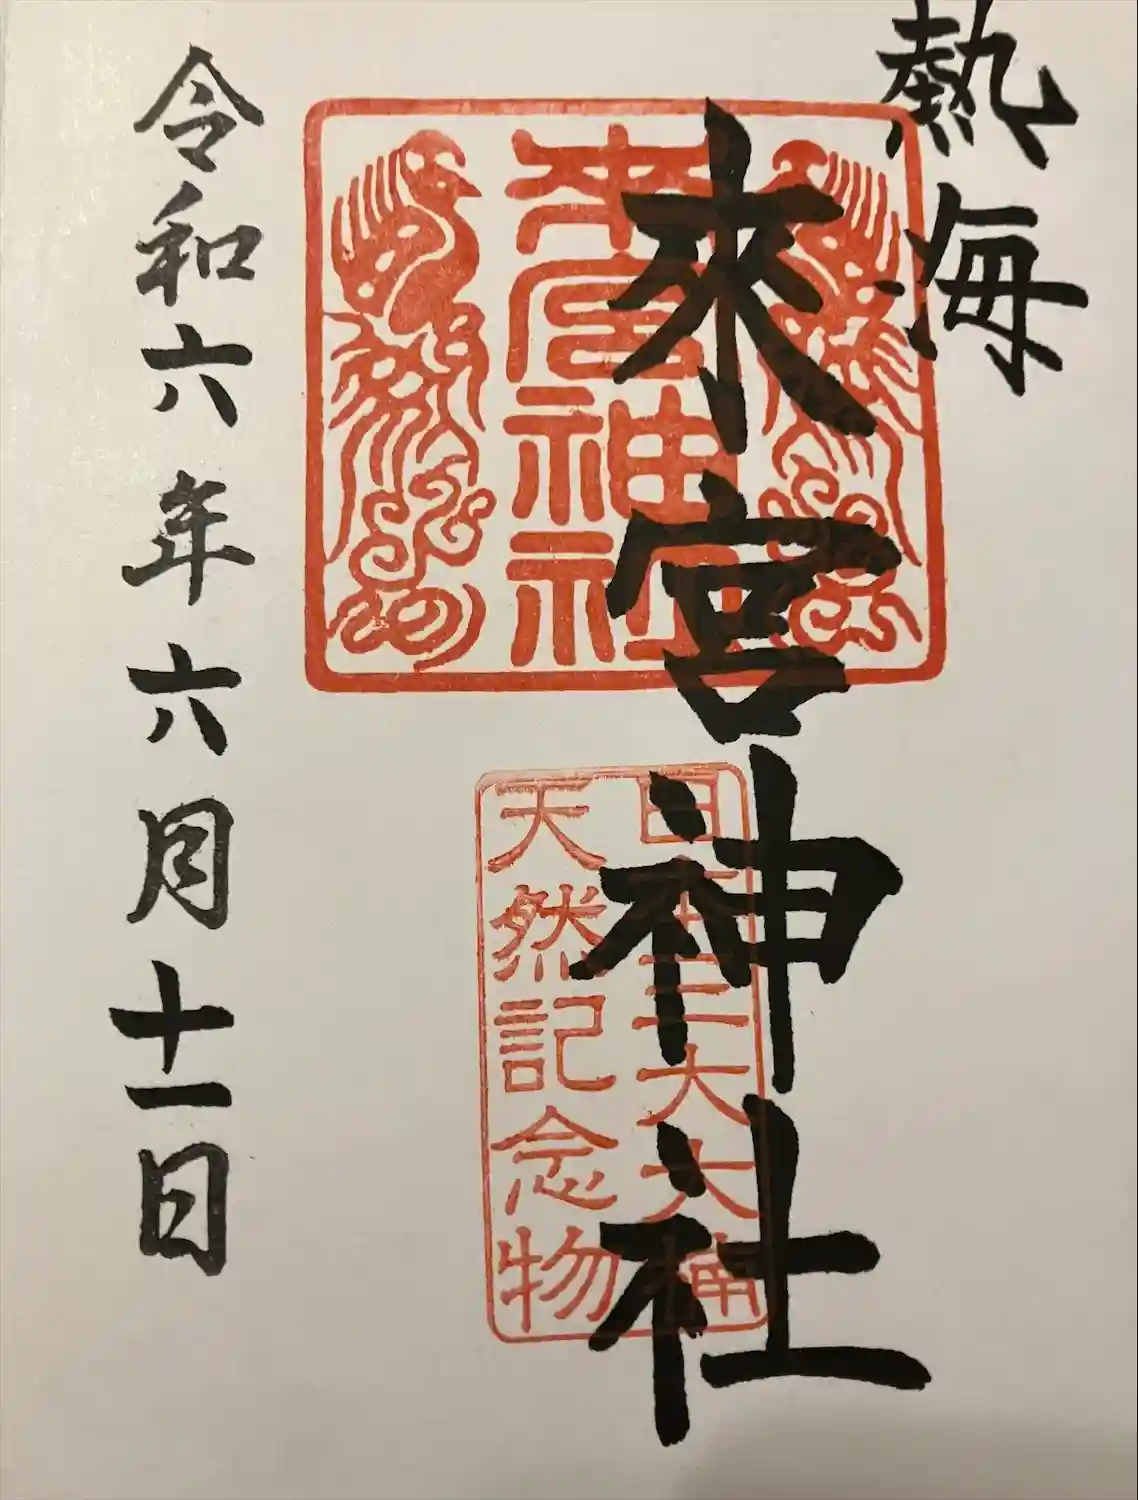 熱海
來宮神社
來宮神社
日本三大大楠
天然記念物
令和六年六月十一日